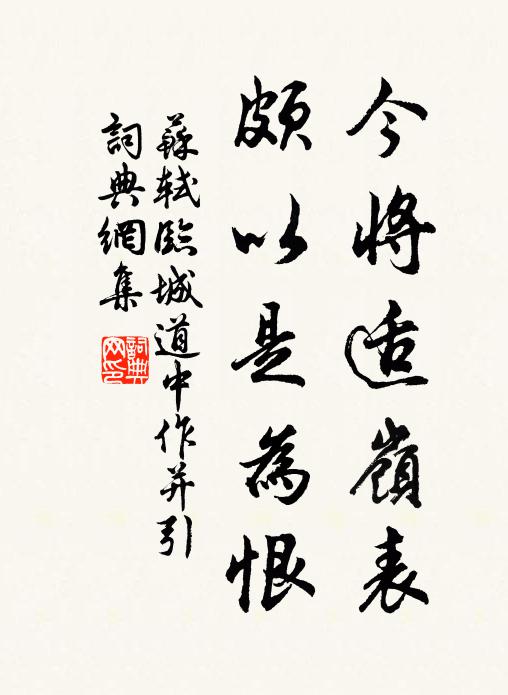 今將適嶺表
頗以是為恨
蘇軾臨城道中作并引
詞典網集
詞典
网印